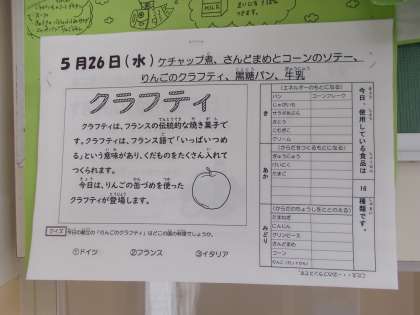 5月26日(水)ケチャップ煮、さんどまめとコーンのソテー、
りんごのクラフティ、黒糖パン、牛乳
クラフティ
クラフティは、フランスの伝統的な焼き菓子で
す。クラフティは、フランス語で「いっぱいつめ
る」という意味があり、くだものをたくさん入れて
つくられます。
今日は、りんごの缶づめを使った
クラフティが登場します。
クイズ 今日の献立の「りんごのクラフティ」はどこの国の料理でしょうか。
①ドイツ ②フランス ③イタリア
今日、使用している食品は 16 種類です。
き
(エネルギーのもとになる)
パン コーンフレーク
じゃがいも
サラダあぶら
さとう
こむぎこ
クリーム
あか
(からだをつくるもとになる)
ぎゅうにゅう
けいにく
たまご
みどり
(からだのちょうしをととのえる)
たまねぎ
にんじん
グリンピース
さんどまめ
コーン
MILK